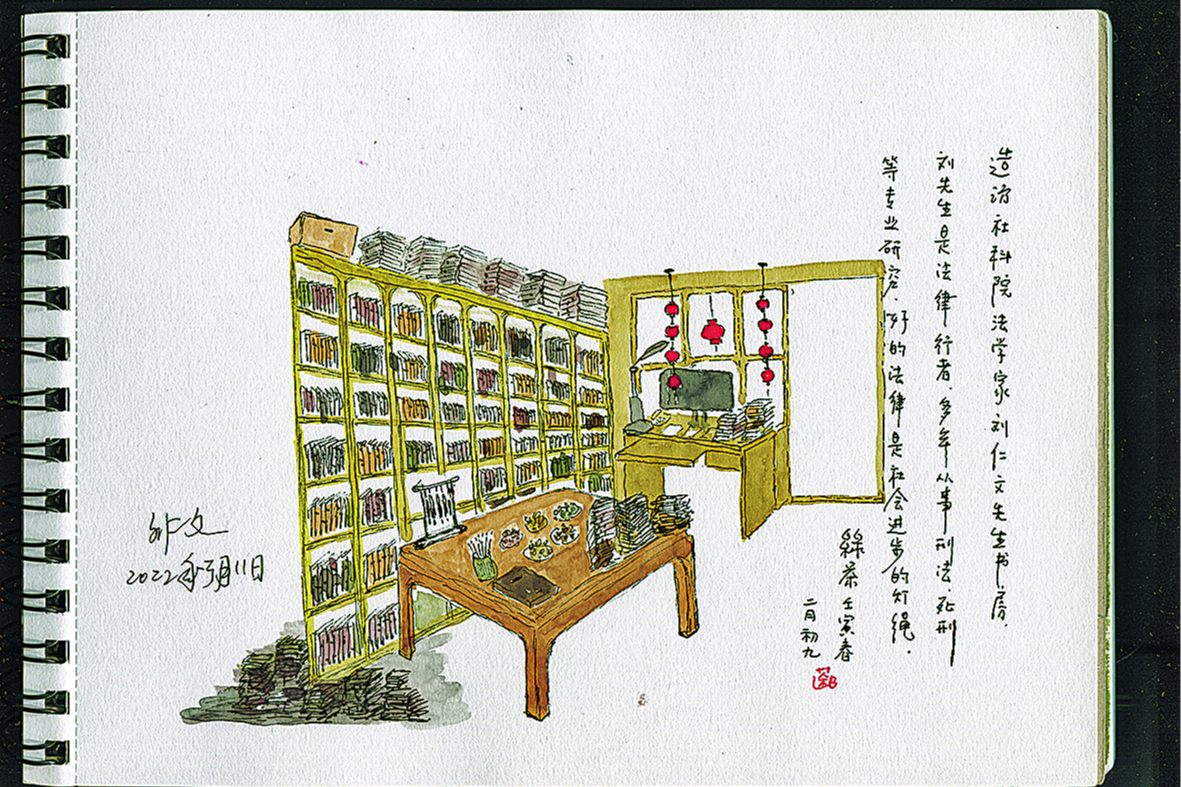 造访社科院法学家刘仁文先生书房.
刘先生是法律行者.多年从事刑法.死刑
等专业研究.好的法律是社会进步的灯绳.
绿茶壬寅春
二月初九
2022年3月11日